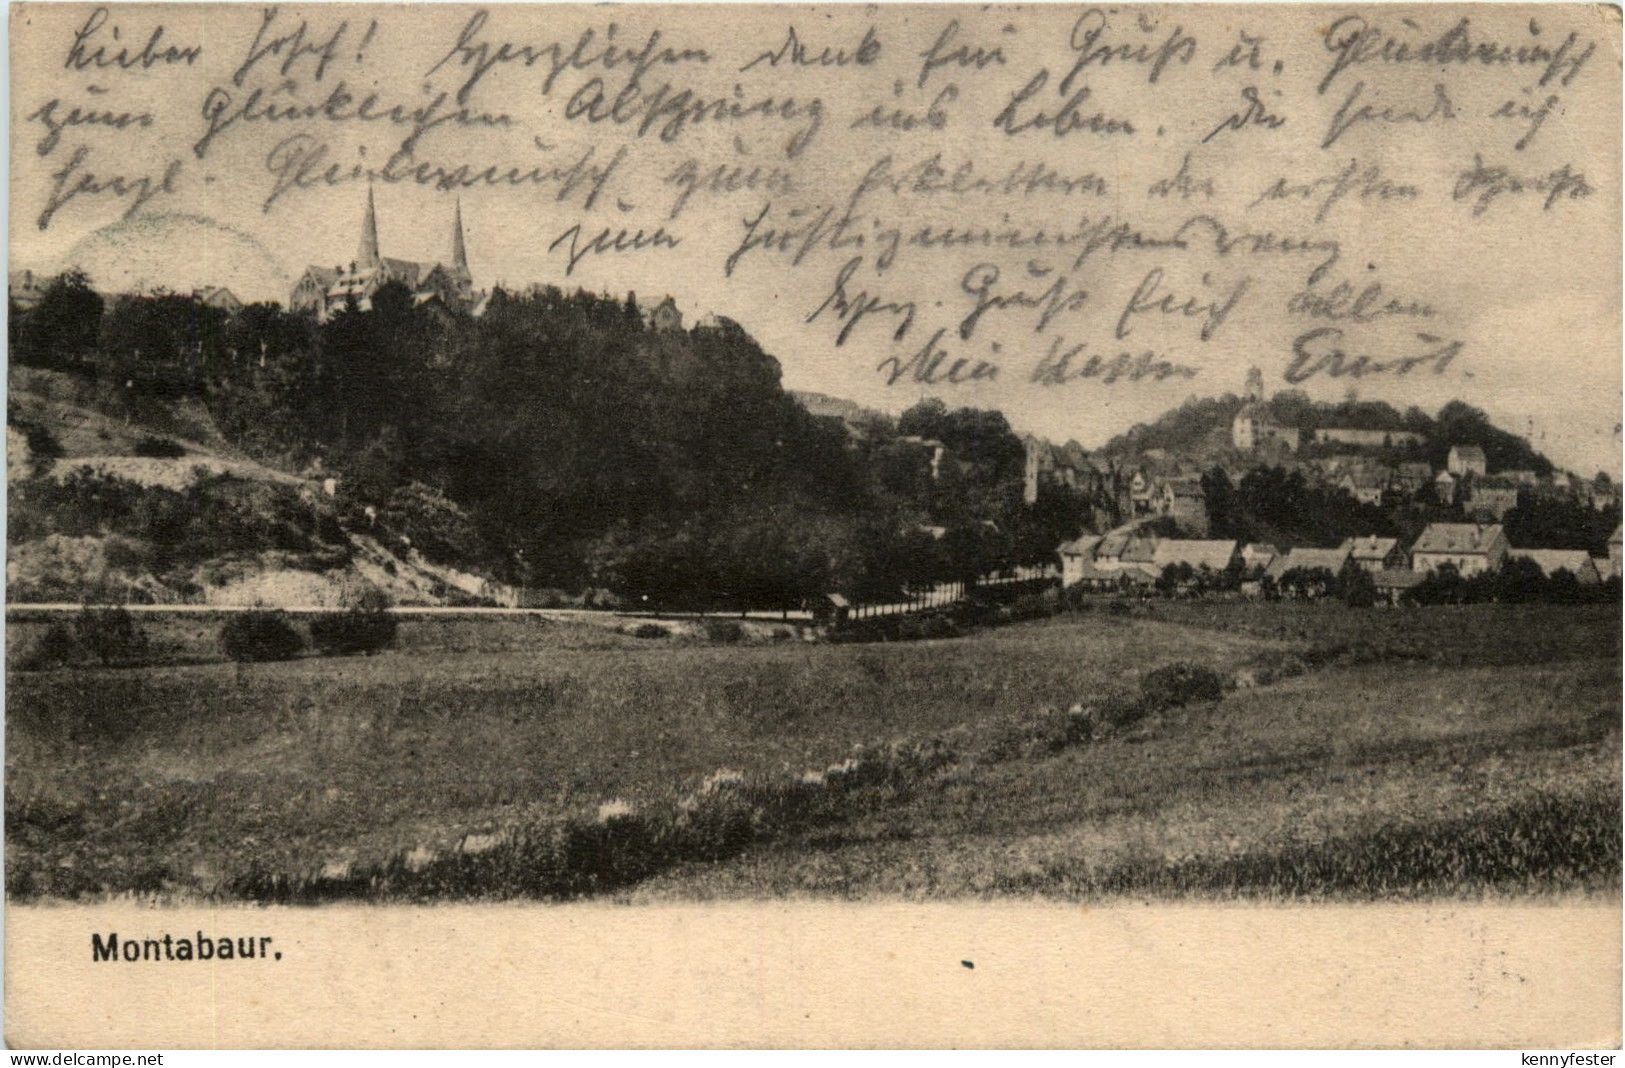 Lieber Josef! Herzlichen Dank für Gruß u. Glückwunsch
zum glücklichen Absprung ins Leben. Dir sende ich
herzl. Glückwunsch zum Erklettern der ersten
zum Justizministersrang
Herz. Gruß Euch allen
Mein Ernst.
Montabaur.
www.delcampe.net
kennyfester